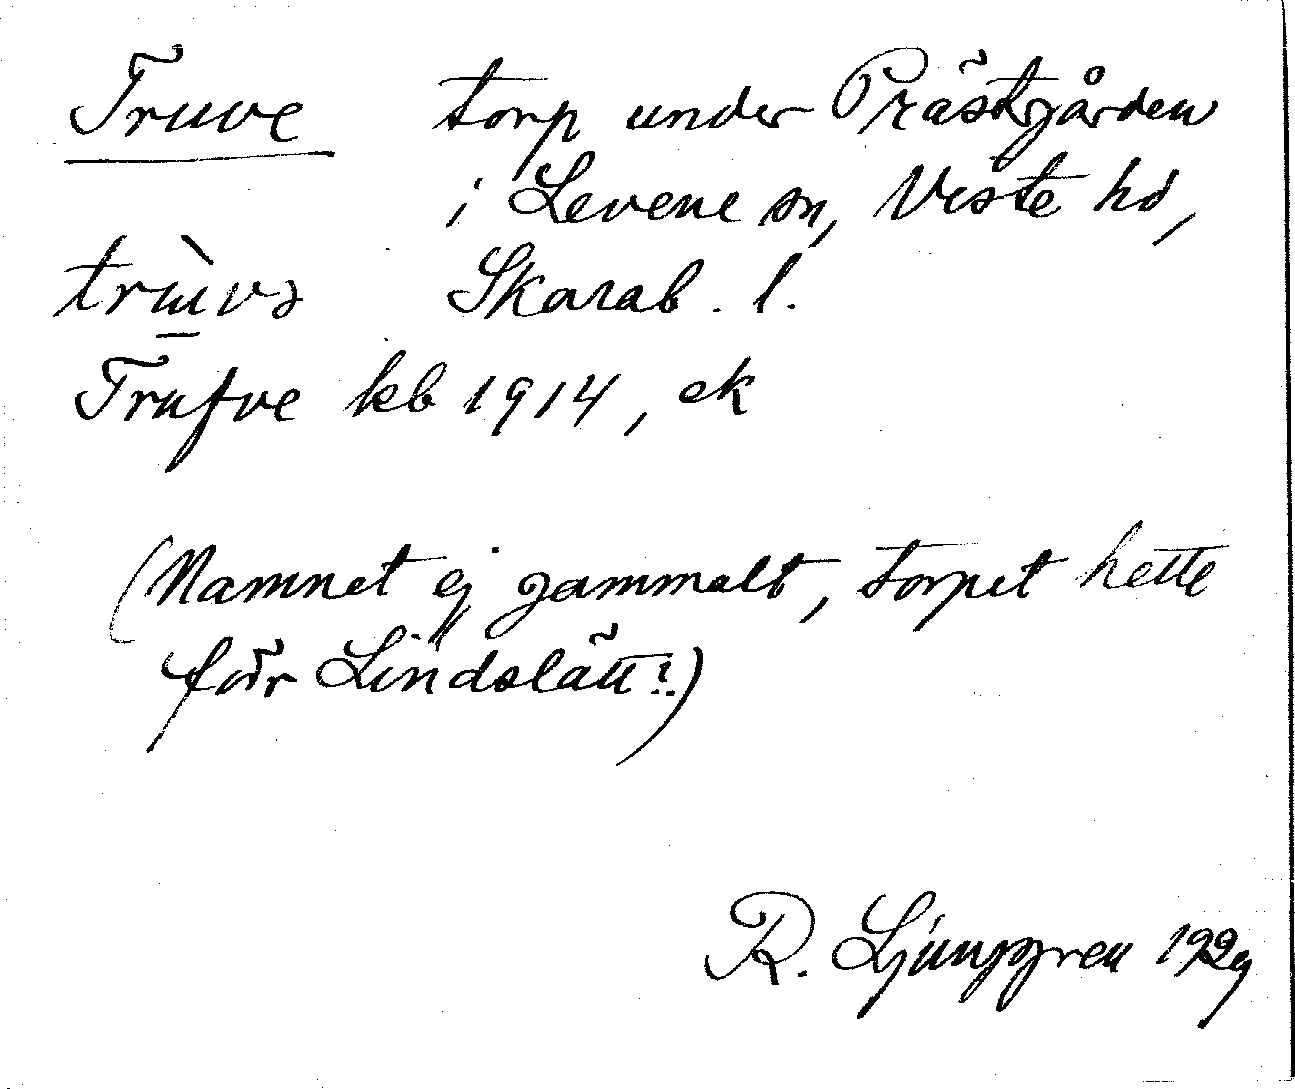 Truve torp under Prästgården
i Levene sn, Viste hd,
trùvə Skarab. l.
Trufve kb 1914, ek
(Namnet ej gammalt, torpet hette
förr Lindslätt?)
R. Ljunggren 1929